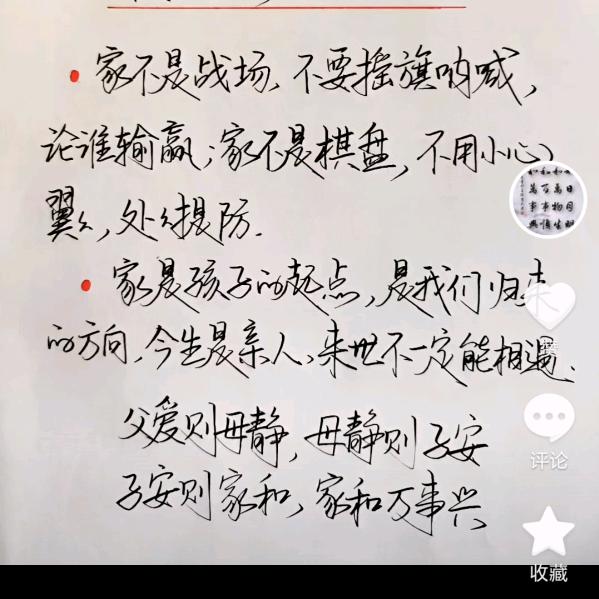 家不是战场，不要摇旗呐喊，
论谁输赢；家不是棋盘，不用小心
翼々，处々提防.
家是孩子的起点，是我们归来
的方向，今生是亲人，来世不一定能相遇.
父爱则母静，母静则子安
子安则家和，家和万事兴
评论
收藏